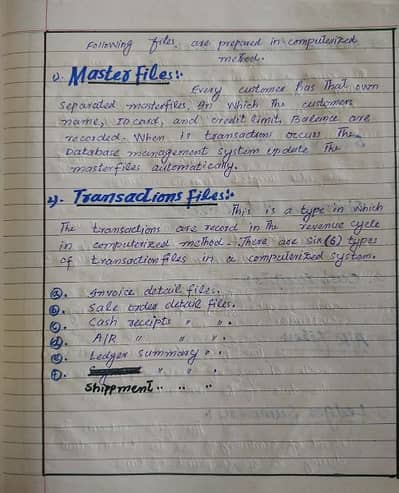 Following files are prepared in computerized
method.
1). Master files:-
Every customer has that own
separated masterfiles, in which the customers
name, ID card, and credit limit, Balance are
recorded. When is transactions occurs The
Database management system update the
masterfiles automatically.
2). Transactions files:-
This is a type in which
The transactions are record in the revenue cycle
in computerized method. There are Six (6) types
of transaction files in a computerized system.
(a). Invoice detail files.
(b). Sale order detail files.
(c). Cash receipts " " .
(d). A/R " " " .
(e). Ledger Summary " .
(f). " " .
Shippment " " "